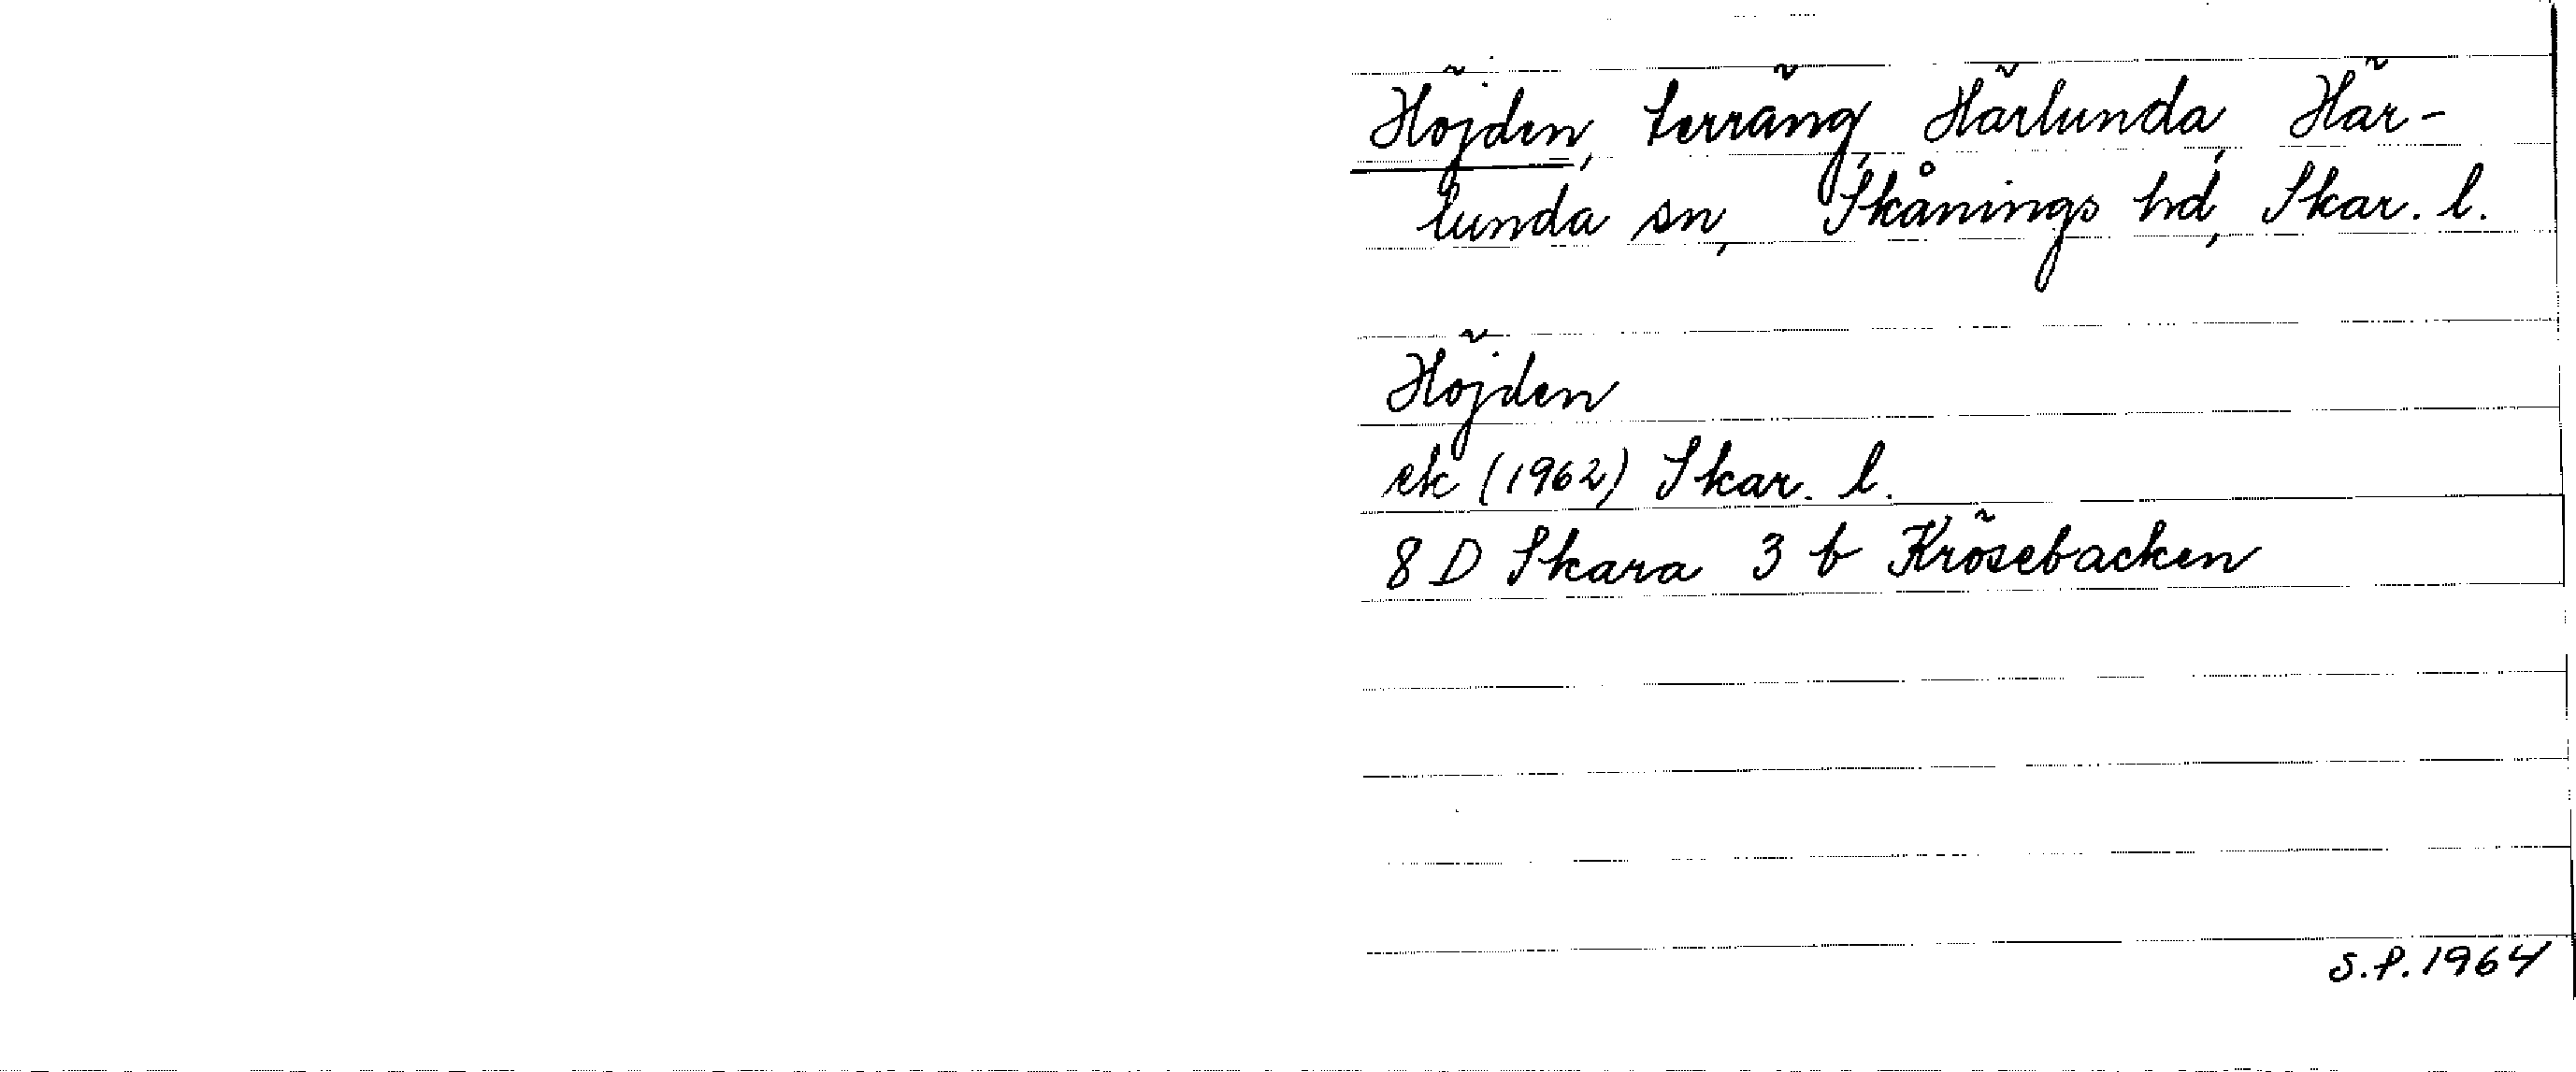 Höjden, terräng, Härlunda, Här-
lunda sn, Skånings hd, Skar. l.
Höjden
ek (1962) Skar. l.
8 D Skara 3 b Krösebacken
S.P. 1964